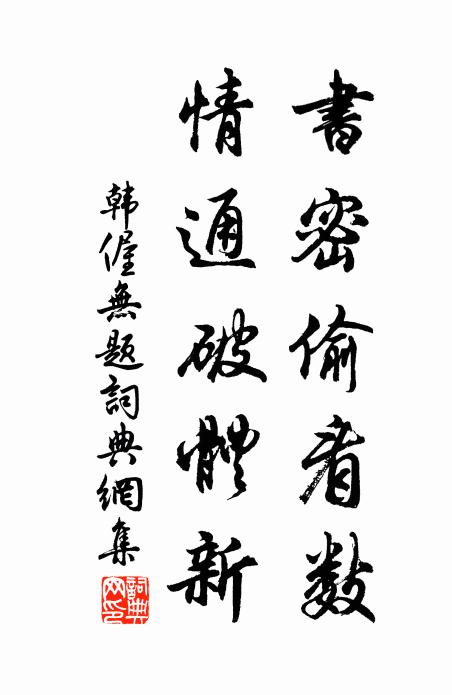 書密偷看數
情通破體新
韩偓無题詞典網集
詞典网印